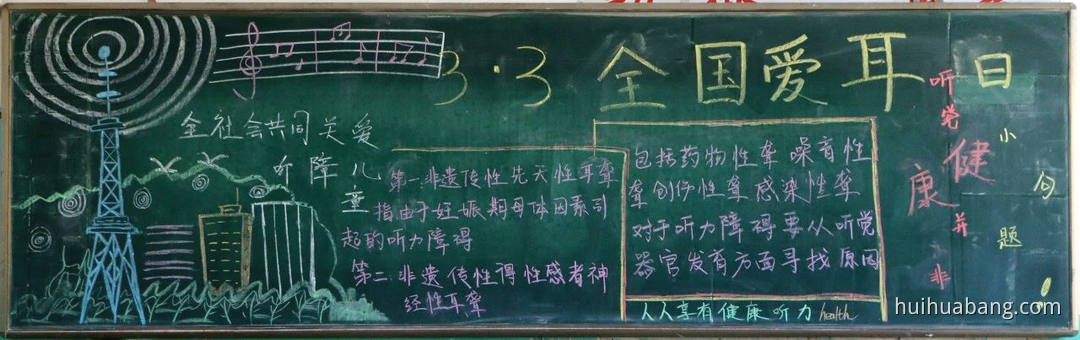 3·3 全国爱耳日
全社会共同关爱
听障儿童
第一:非遗传性先天性耳聋
指由于妊娠期母体因素引
起的听力障碍
第二 非遗传性得性感者神
经性耳聋
包括药物性聋噪音性
聋创伤性聋感染性聋
对于听力障碍要从听觉
器官发育方面寻找原因
人人享有健康听力 health
听觉健康并非
小句题
huihuabang.com